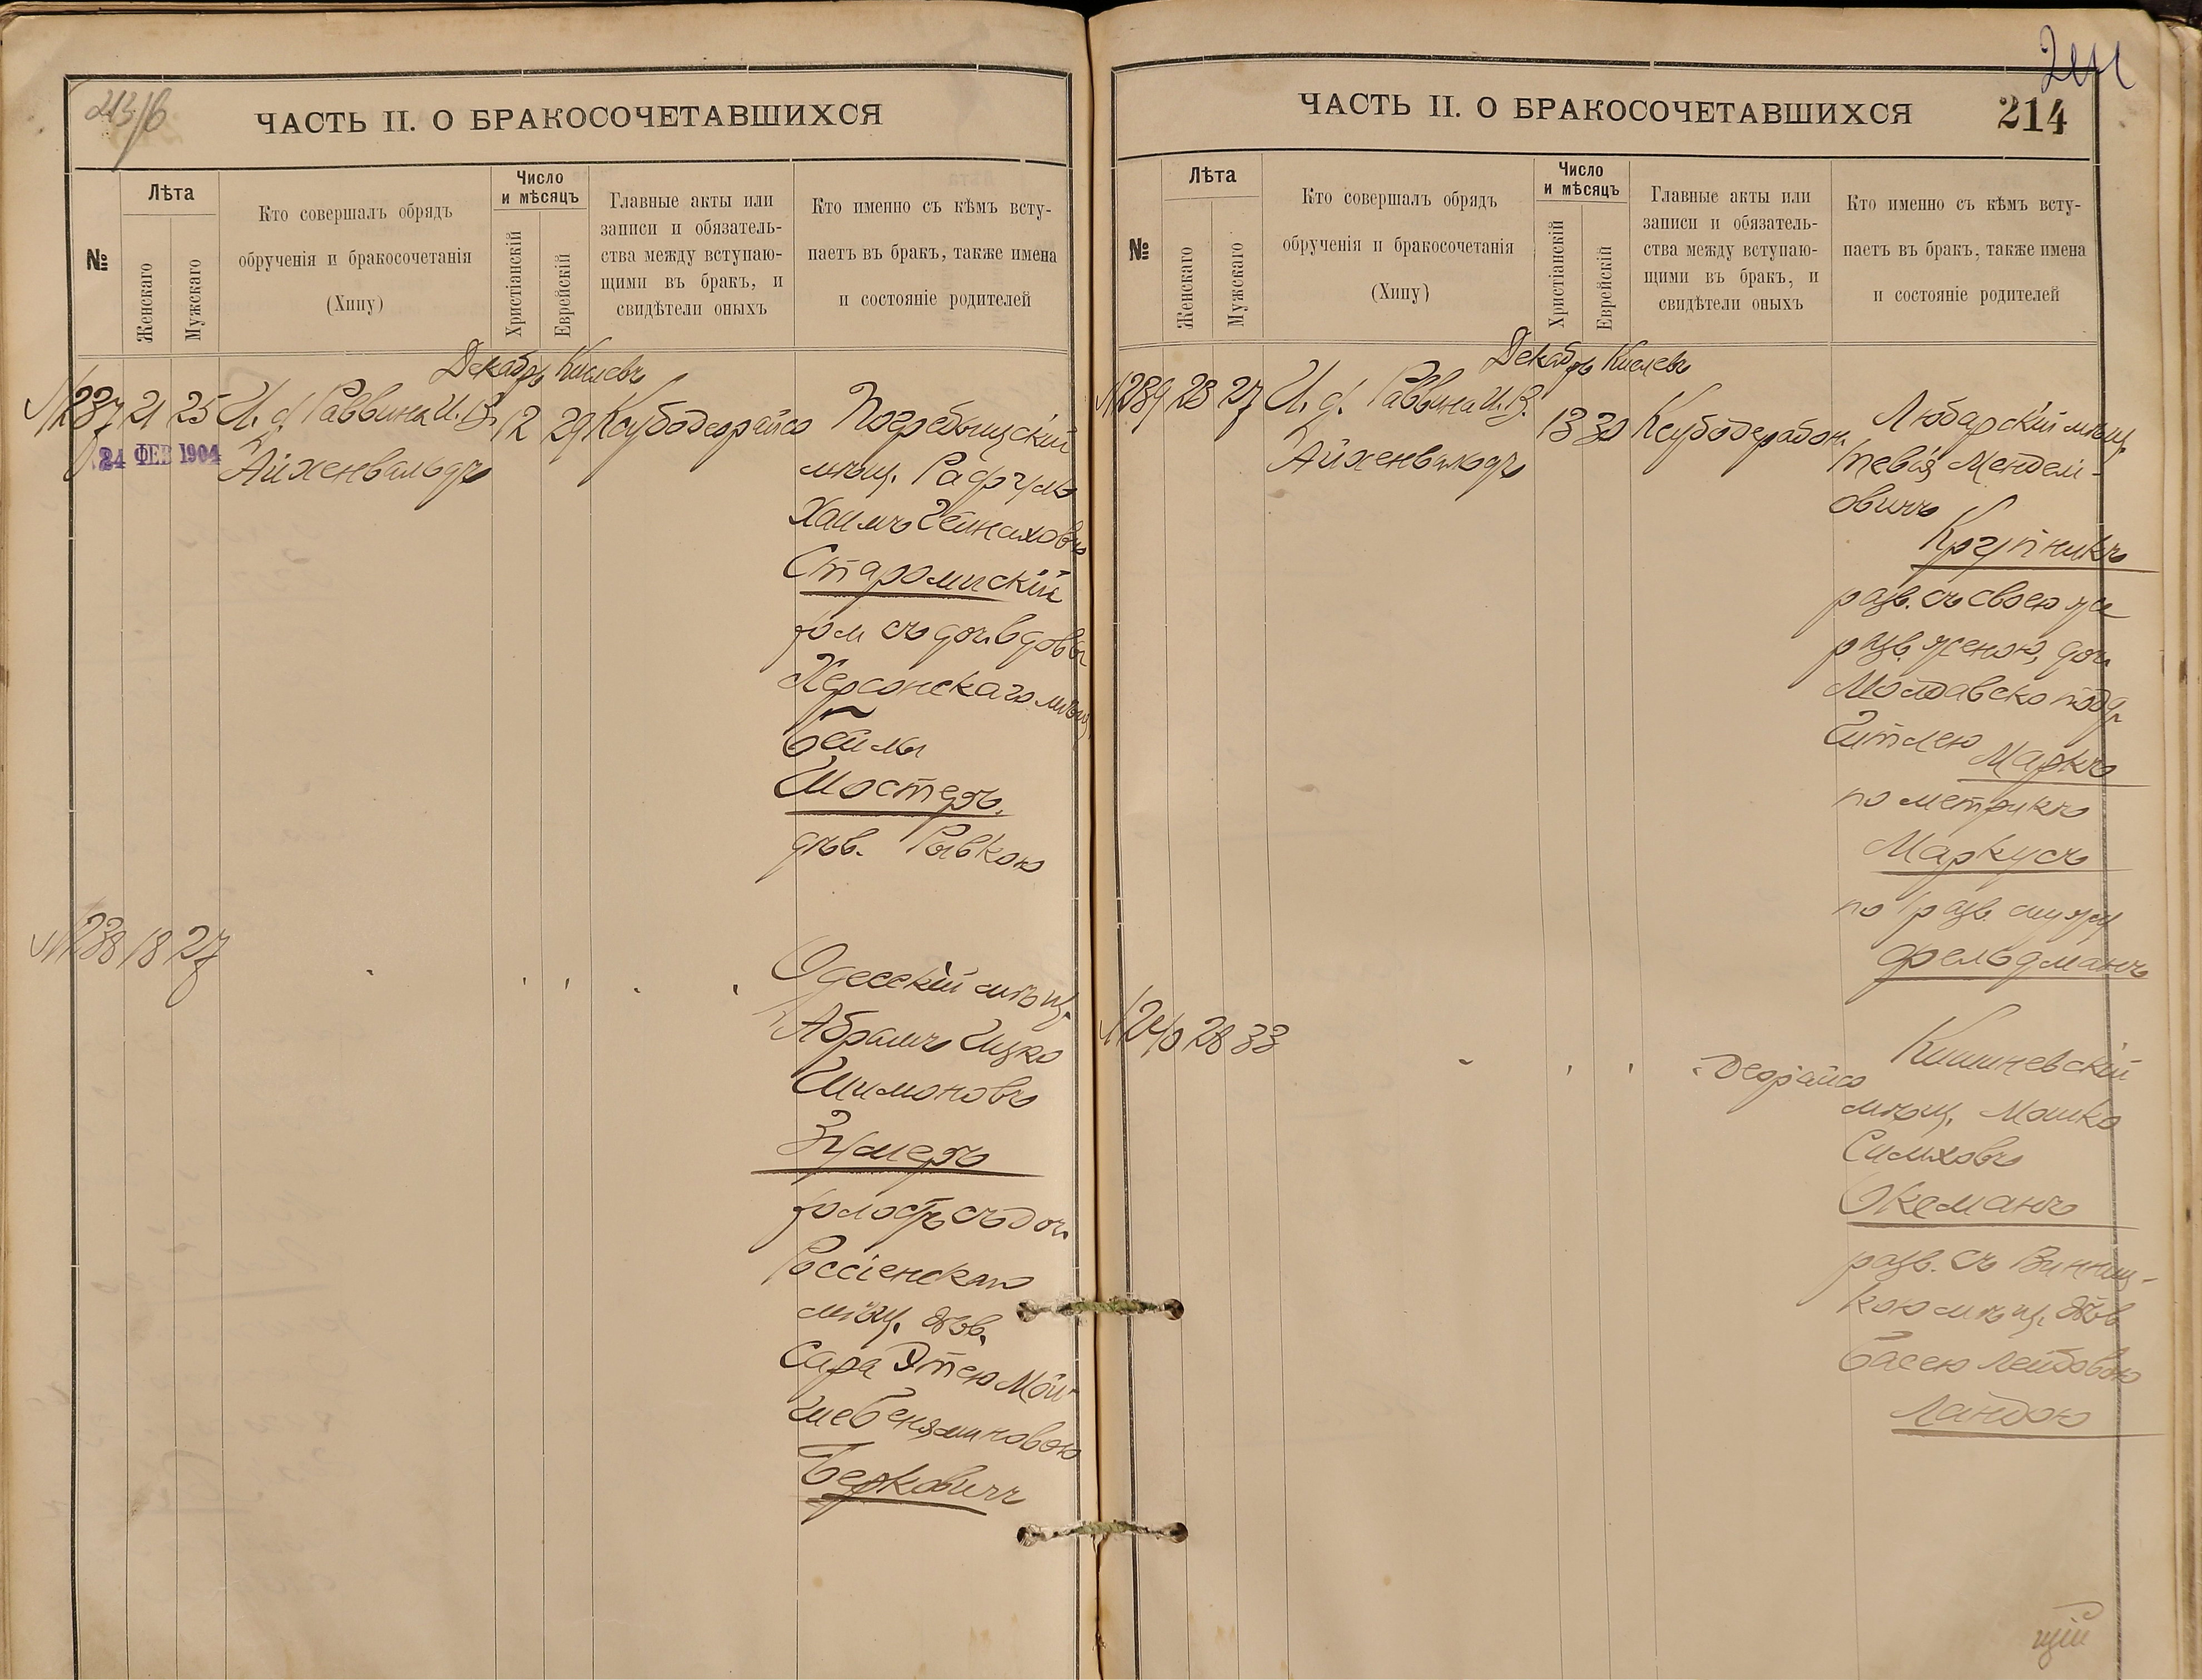 213/б
ЧАСТЬ II. О БРАКОСОЧЕТАВШИХСЯ
№
Лѣта
Женскаго
Мужскаго
Кто совершалъ обрядъ
обрученія и бракосочетанія
(Хипу)
Число
и мѣсяцъ
Христіанскій
Еврейскій
Главные акты или
записи и обязатель-
ства между вступаю-
щими въ бракъ, и
свидѣтели оныхъ
Кто именно съ кѣмъ всту-
паетъ въ бракъ, также имена
и состояніе родителей
Декабрь Кислевъ
№237 21 25 И. д. Раввина И. В. 12 29
24 ФЕВ 1904
Айхенвальдъ
Погребыщскій
мѣщ.
Хаимъ Гейнаховъ
Старомискій
хол съ доч. вдовы
Херсонскаго мѣщ.
Бейлы
Шостеръ,
дѣв. Рывкою
№238 18 27
Одесскій мѣщ.
Абрамъ Ицко
Шимоновъ
Зумеръ
холостъ съ доч.
Россіенскаго
мѣщ. дѣв.
Сара Этею Мов-
шебеняминовою
Берковичъ
ЧАСТЬ II. О БРАКОСОЧЕТАВШИХСЯ
214
№
Лѣта
Женскаго
Мужскаго
Кто совершалъ обрядъ
обрученія и бракосочетанія
(Хипу)
Число
и мѣсяцъ
Христіанскій
Еврейскій
Главные акты или
записи и обязатель-
ства между вступаю-
щими въ бракъ, и
свидѣтели оныхъ
Кто именно съ кѣмъ всту-
паетъ въ бракъ, также имена
и состояніе родителей
Декабрь Кислевъ
№239 23 27 И. д. Раввина И. В. 13 30
Айхенвальдъ
Любарскій мѣщ.
Тевія Мендел-
овичъ
Крупникъ
разв. съ своею же
разв. женою, доч.
Молдавско подд.
Гитлею Маркъ
по метрикѣ
Маркусъ
по разв. мужу
Фельдманъ
№240 28 33
Кишиневскій
мѣщ. Мошко
Симховъ
Океманъ
разв. съ Винниц-
кою мѣщ. дѣв
Басею Лейбовою
Ландою
щій